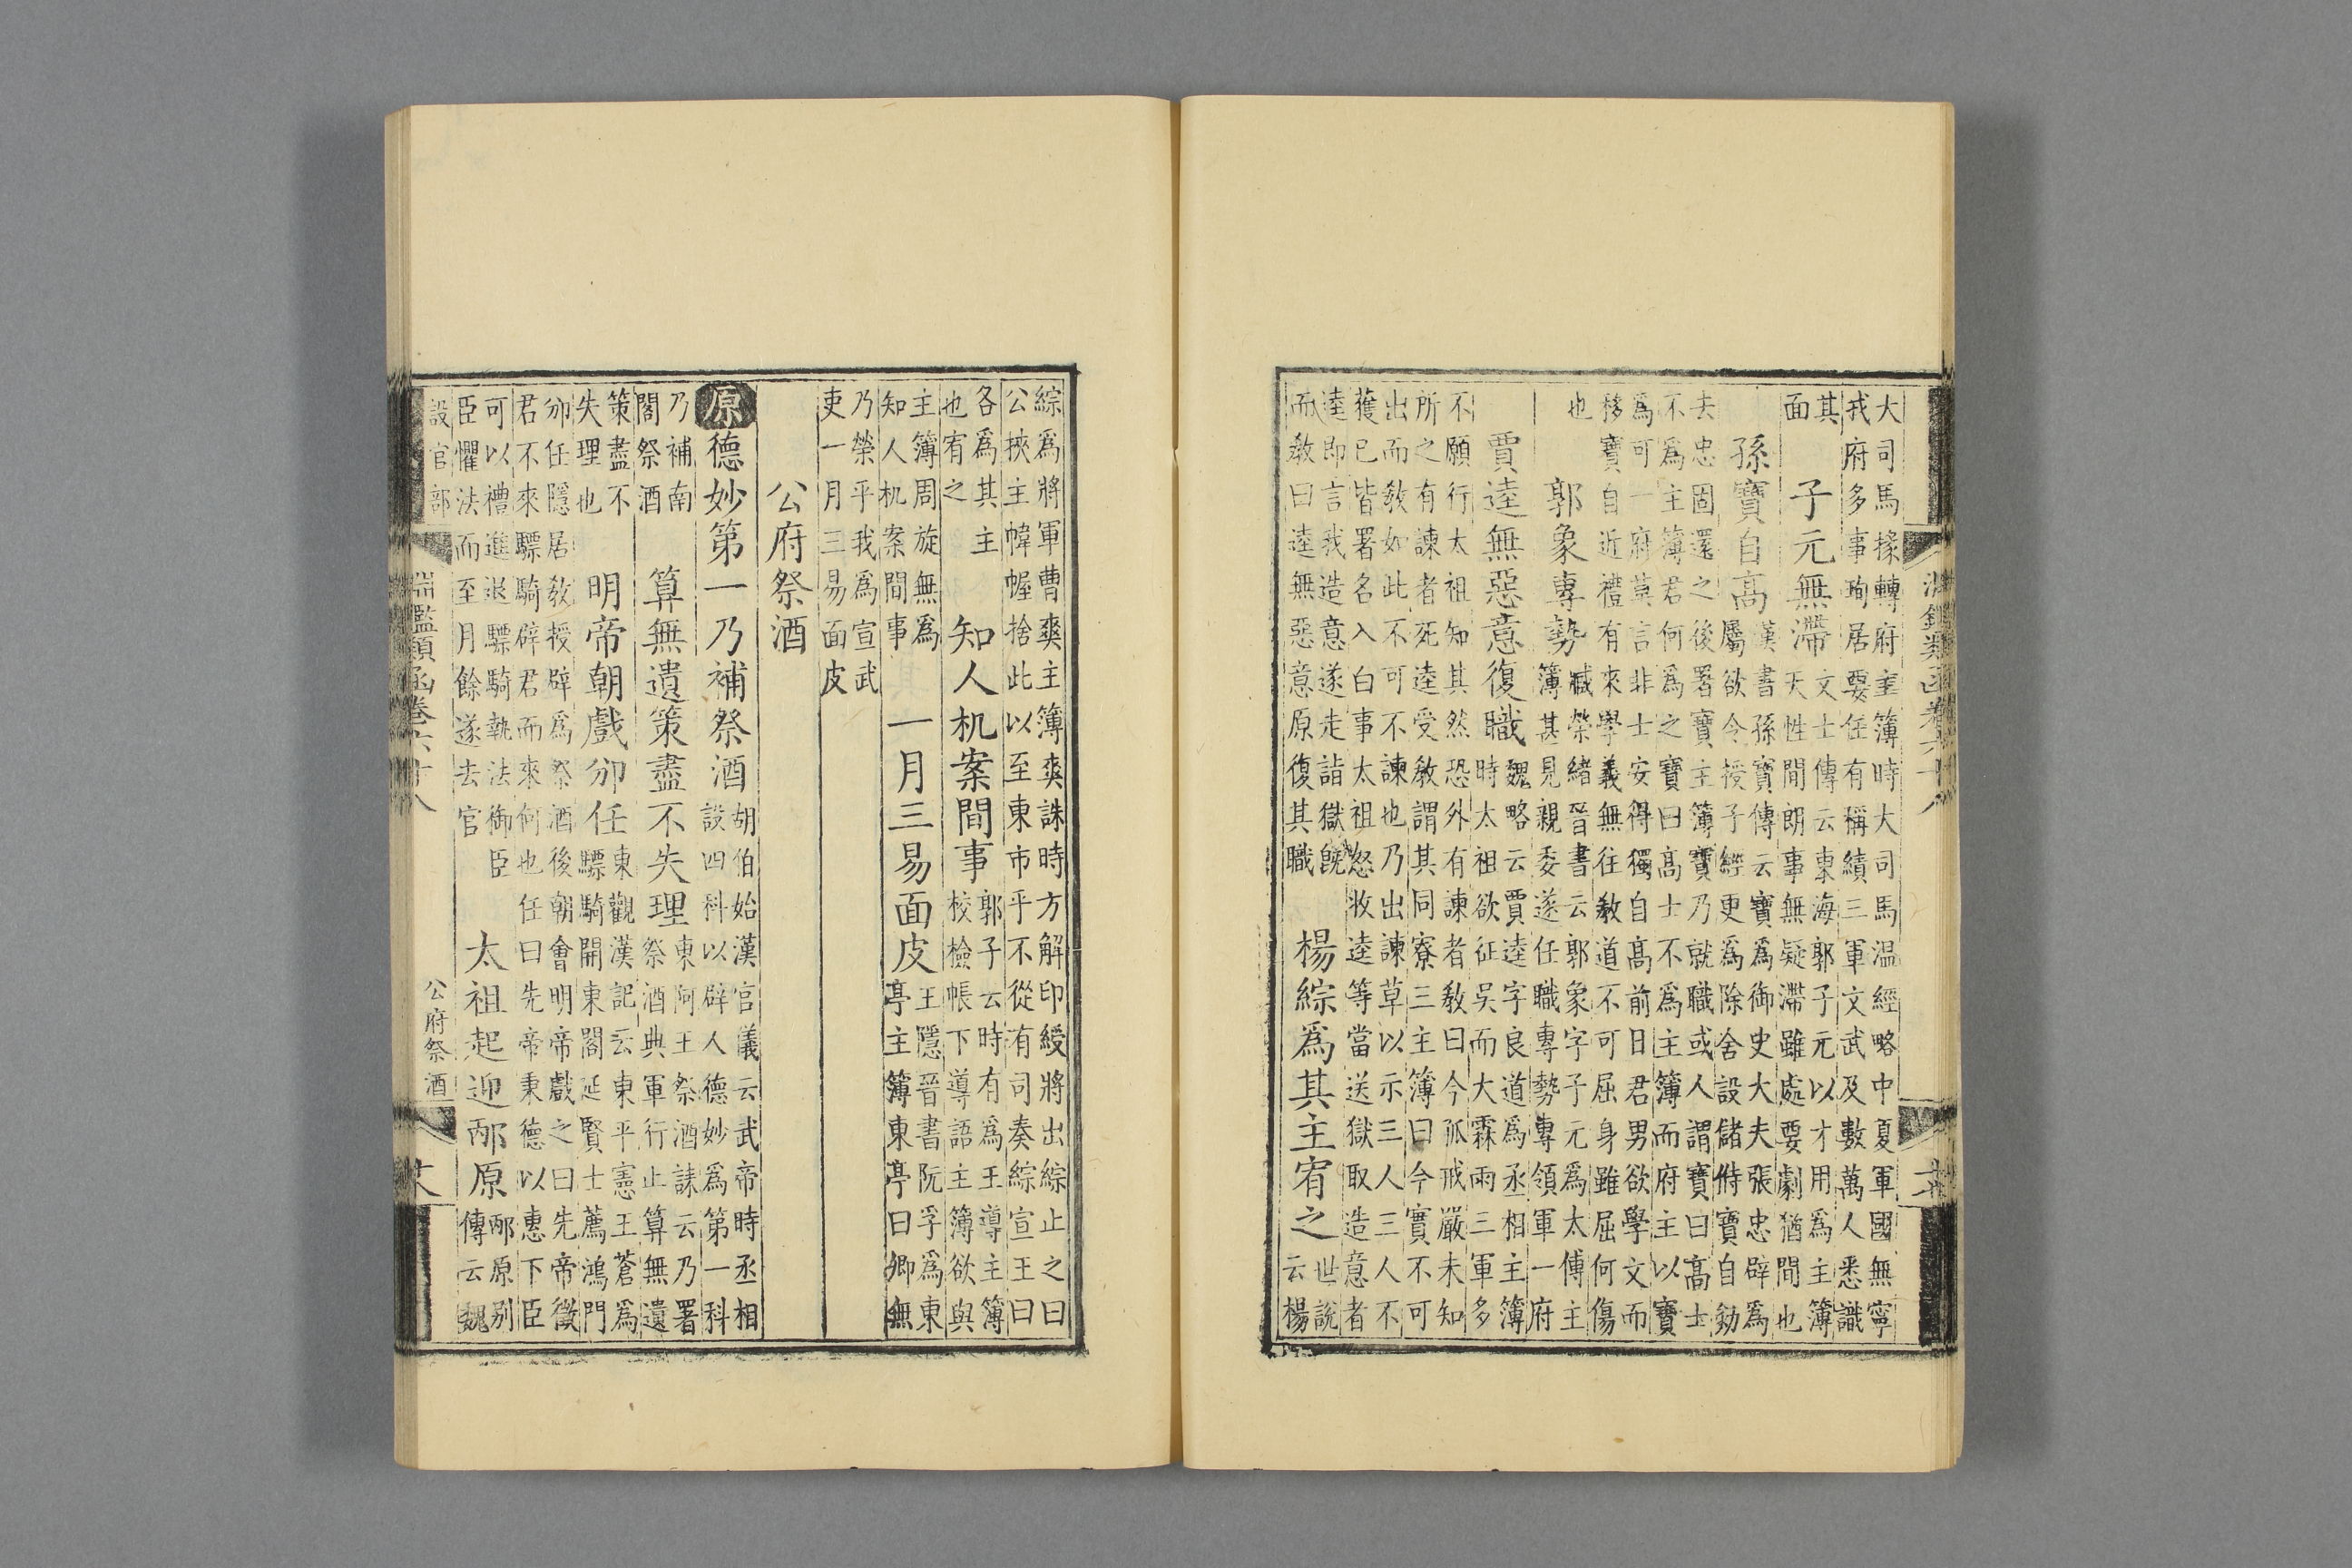 大司馬掾轉府主簿時大司馬温經略中夏軍國無寧
戎府多事珣居要任有稱績三軍文武及數萬人悉識
其
面
子元無滯
文士傳云東海郭子元以才用爲主簿
天性閒朗事無疑滯雖處要劇猶間也
孫寶自高
漢書孫寶傳云寶爲御史大夫張忠辟爲
屬欲令授子經更爲除舍設儲偫寶自劾
去忠固還之後署寶主簿寶乃就職或人謂寶曰高士
不爲主簿君何爲之寶曰高士不爲主簿而府主以寶
爲可一府莫言非士安得獨自高前日君男欲學文而
移寶自近禮有來學義無往教道不可屈身雖屈何傷
也
郭象專勢
臧榮緒晉書云郭象字子元爲太傅主
簿甚見親委遂任職專勢專領軍一府
賈逵無惡意復職
魏略云賈逵字良道爲丞相主簿
時太祖欲征吳而大霖雨三軍多
不願行太祖知其然恐外有諫者敎曰今孤戒嚴未知
所之有諫者死逵受敎謂其同寮三主簿曰今實不可
出而敎如此不可不諫也乃出諫草以示三人三人不
獲已皆署名入白事太祖怒收逵等當送獄取造意者
逵即言我造意遂走詣獄旣
而敎曰逵無惡意原復其職
楊綜爲其主宥之
世說
云楊
淵鑑類函卷六十八
綜爲將軍曹爽主簿爽誅時方解印綬將出綜止之曰
公挾主幃幄捨此以至東市乎不從有司奏綜宣王曰
各爲其主
也宥之
知人机案間事
郭子云時有爲王導主簿
校檢帳下導語主簿欲與
主簿周旋無爲
知人机案間事
一月三易面皮
王隱晉書阮孚爲東
亭主簿東亭曰卿無
乃榮乎我爲宣武
吏一月三易面皮
公府祭酒
原德妙第一乃補祭酒
胡伯始漢官儀云武帝時丞相
設四科以辟人德妙爲第一科
乃補南
閣祭酒
算無遺策盡不失理
東阿王祭酒誄云乃署
祭酒典軍行止算無遺
策盡不
失理也
明帝朝戲邠任
東觀漢記云東平憲王蒼爲
驃騎開東閣延賢士薦鴻門
邠任隱居敎授辟爲祭酒後朝會明帝戲之曰先帝徵
君不來驃騎辟君而來何也任曰先帝秉德以惠下臣
可以禮進退驃騎執法御臣
臣懼法而至月餘遂去官
太祖起迎邴原
邴原别
傳云魏
設官部
淵鑑類函卷六十八
公府祭酒